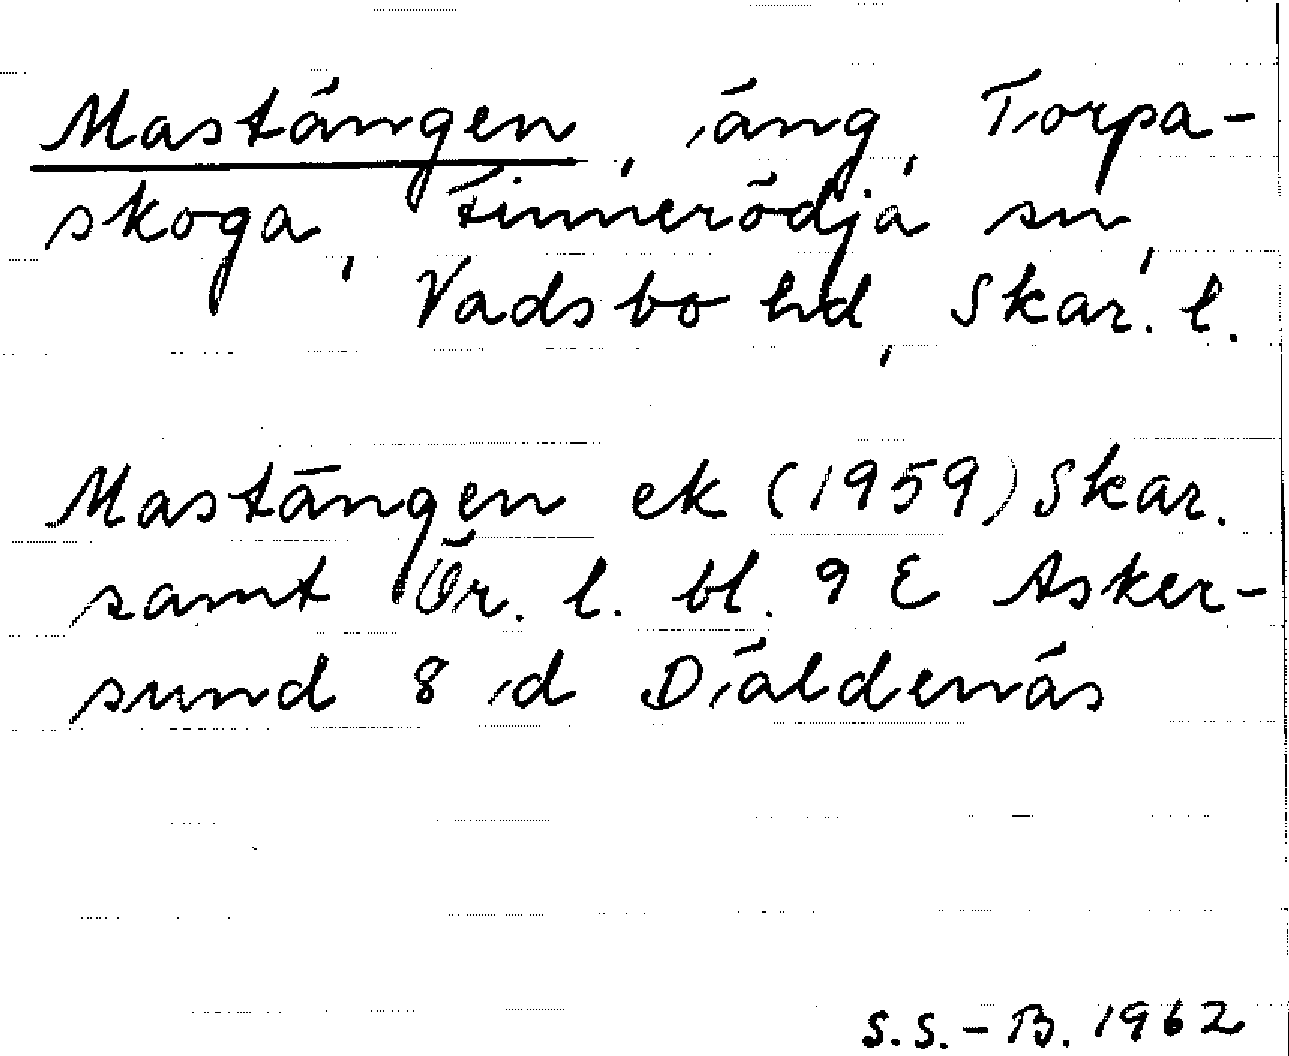 Mastängen, äng, Torpa-
skoga, Finnerödja sn,
Vadsbo hd, Skar. l.
Mastängen ek (1959) Skar.
samt Ör. l. bl. 9 E Asker-
sund 8 d Däldenäs
S.S.-B. 1962